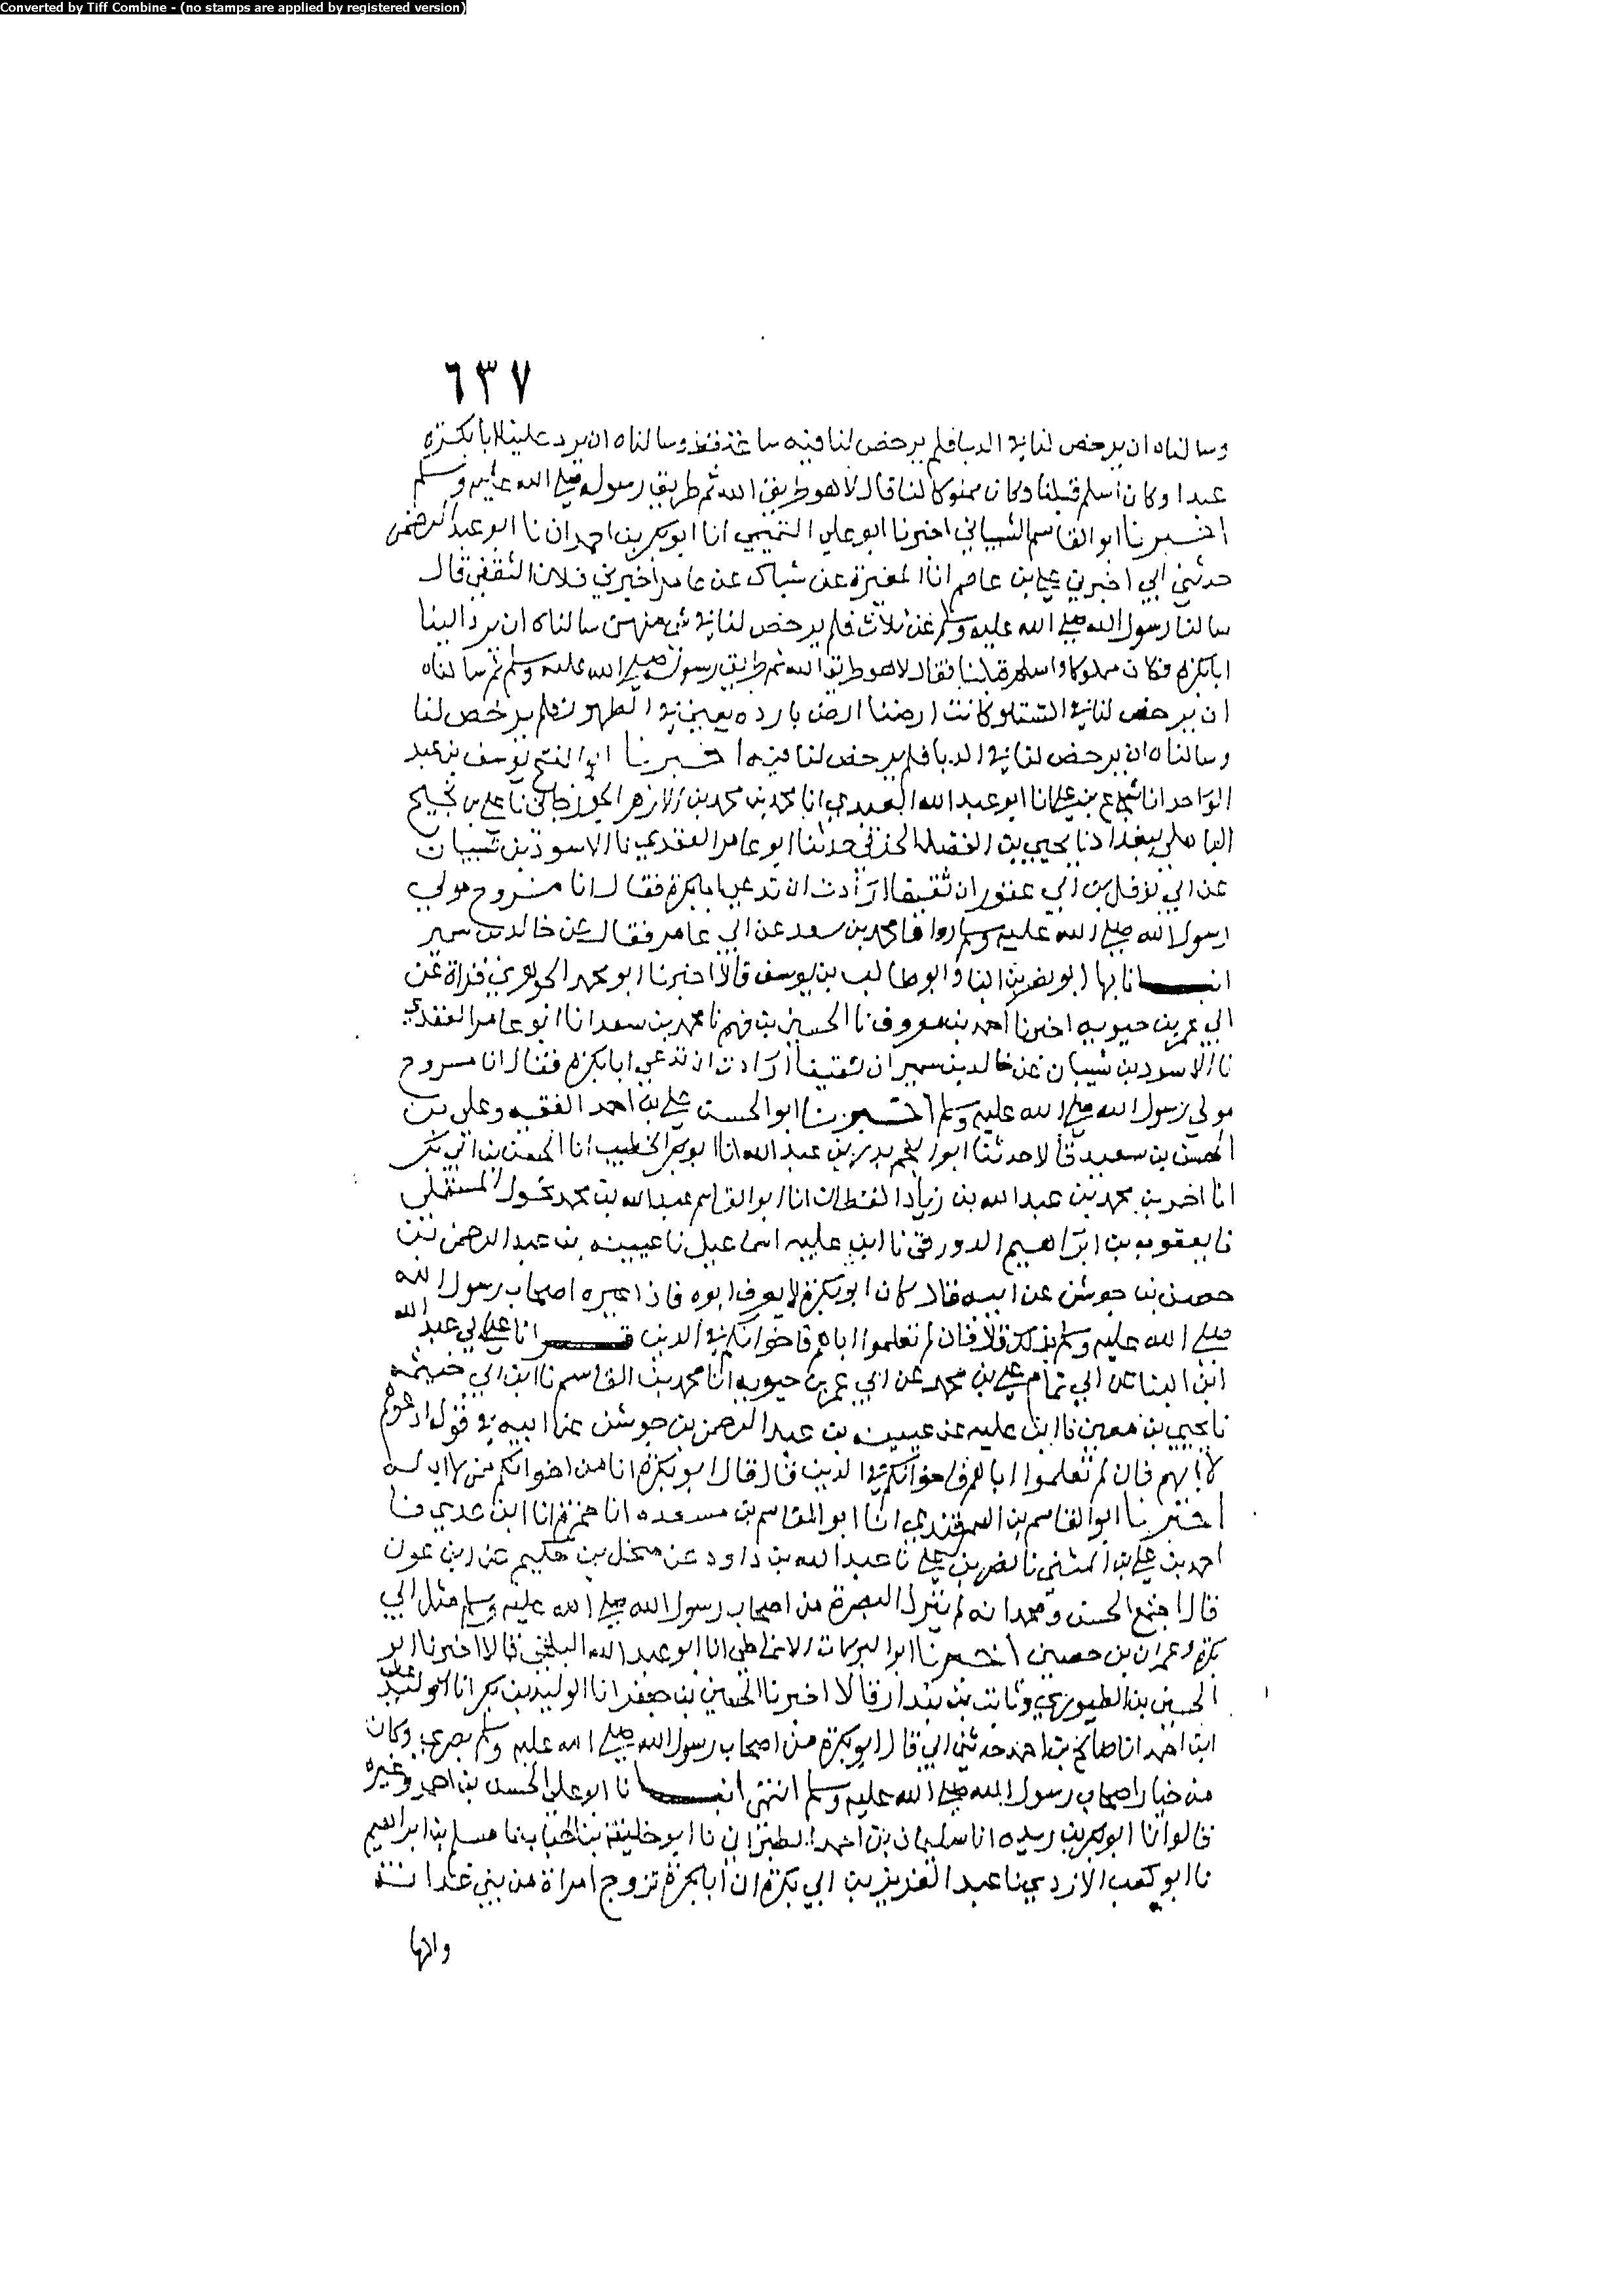 Converted by Tiff Combine - (no stamps are applied by registered version)
٦٣٧
وسالناه ان يرخص لنا في الدبا فلم يرخص لنا فيه ساعة قط وسالناه ان يرد علينا ابا بكرة
عبدا وكان اسلم قبلنا وكان مملوكا لنا قال لا هو طريق الله ثم طريق رسوله صلى الله عليه وسلم
اخبرنا ابو القاسم الشيباني اخبرنا ابو علي التميمي انا ابو بكر بن احمدان نا ابو عبد الرحمن
حدثني ابي اخبرني علي بن عاصم انا المغيرة عن شباك عن عامر اخبرني فلان الثقفي قال
سالنا رسول الله صلى الله عليه وسلم عن ثلاث فلم يرخص لنا في شي منهن سالناه ان يرد الينا
ابا بكرة فكان مملوكا واسلم قبلنا فقال لا هو طريق الله ثم طريق رسول الله صلى الله عليه وسلم ثم سالناه
ان يرخص لنا في الشتا وكانت ارضنا ارض بارده يعني في الطهور فلم يرخص لنا
وسالناه ان يرخص لنا في الدبا فلم يرخص لنا فيه اخبرنا ابو الفتح يوسف بن عبد
الواحد انا شجاع بن علي انا ابو عبد الله العبدي انا محمد بن محمد بن الازهر الجوزجاني نا علي بن نجيح
الباهلي ببغداد نا يحيى بن الفضل الخرقي حدثنا ابو عامر العقدي نا الاسود بن شيبان
عن ابي نوفل بن ابي عقرب ان ثقيفا ارادت ان تدعي ابا بكرة فقال انا مسروح مولى
رسول الله صلى الله عليه وسلم رواها محمد بن سعد عن ابي عامر فقال عن خالد بن سمير
انبانا بها ابو نصر بن البنا وابو طالب بن يوسف قالا اخبرنا ابو محمد الجوهري قراة عن
ابي عمر بن حيويه اخبرنا احمد بن معروف نا الحسين بن فهم نا محمد بن سعد انا ابو عامر العقدي
نا الاسود بن شيبان عن خالد بن سمير ان ثقيفا ارادت ان تدعي ابا بكرة فقال انا مسروح
مولى رسول الله صلى الله عليه وسلم اخبرنا ابو الحسن علي بن احمد الفقيه وعلي بن
الحسن بن سعيد قالا حدثنا ابو النجم بدر بن عبد الله انا ابو بكر الخطيب انا الحسن بن ابي بكر
انا احمد بن محمد بن عبد الله بن زياد القطان انا ابو القاسم عبد الله بن محمد المستملي
نا يعقوب بن ابراهيم الدورقي نا ابن عليه اسماعيل نا عيينه بن عبد الرحمن بن
حصن بن جوشن عن ابيه قال كان ابو بكرة لا يعرف ابوه فاذا عيره اصحاب رسول الله
صلى الله عليه وسلم بذلك قال فان لم تعلموا اباهم فاخوانكم في الدين قرانا على ابي عبد الله
ابن البنا عن ابي تمام علي بن محمد عن ابي عمر بن حيويه انا محمد بن القاسم نا ابن ابي خيثمه
نا يحيى بن معين نا ابن عليه عن عيينه بن عبد الرحمن بن جوشن عن ابيه في قوله ادعوهم
لابايهم فان لم تعلموا اباهم فاخوانكم في الدين قال قال ابو بكرة انا من اخوانكم من لا اب له
اخبرنا ابو القاسم بن السمرقندي انا ابو القاسم بن مسعده انا حمزة انا ابن عدي نا
احمد بن علي بن المثنى نا نصر بن علي نا عبد الله بن داود عن منخل بن حكيم عن ابن عون
قال اجتمع الحسن ومحمد انه لم ينزل البصرة من اصحاب رسول الله صلى الله عليه وسلم مثل ابي
بكرة وعمران بن حصين اخبرنا ابو البركات الانماطي انا ابو عبد الله البلخي قالا اخبرنا ابو
الحسين بن الطيوري وثابت بن بندار قالا اخبرنا الحسين بن جعفر انا الوليد بن بكر انا علي
ابن احمد انا صالح بن احمد حدثني ابي قال ابو بكرة من اصحاب رسول الله صلى الله عليه وسلم بصري وكان
من خيار اصحاب رسول الله صلى الله عليه وسلم انتهى انبانا ابو علي الحسن بن احمد وغيره
قالوا انا ابو بكر بن ريذه انا سليمان بن احمد الطبراني نا ابو خليفة بن الحباب نا مسلم بن ابراهيم
نا ابو كعب الازدي نا عبد العزيز بن ابي بكرة ان ابا بكرة تزوج امراة من بني غدانة
وانها